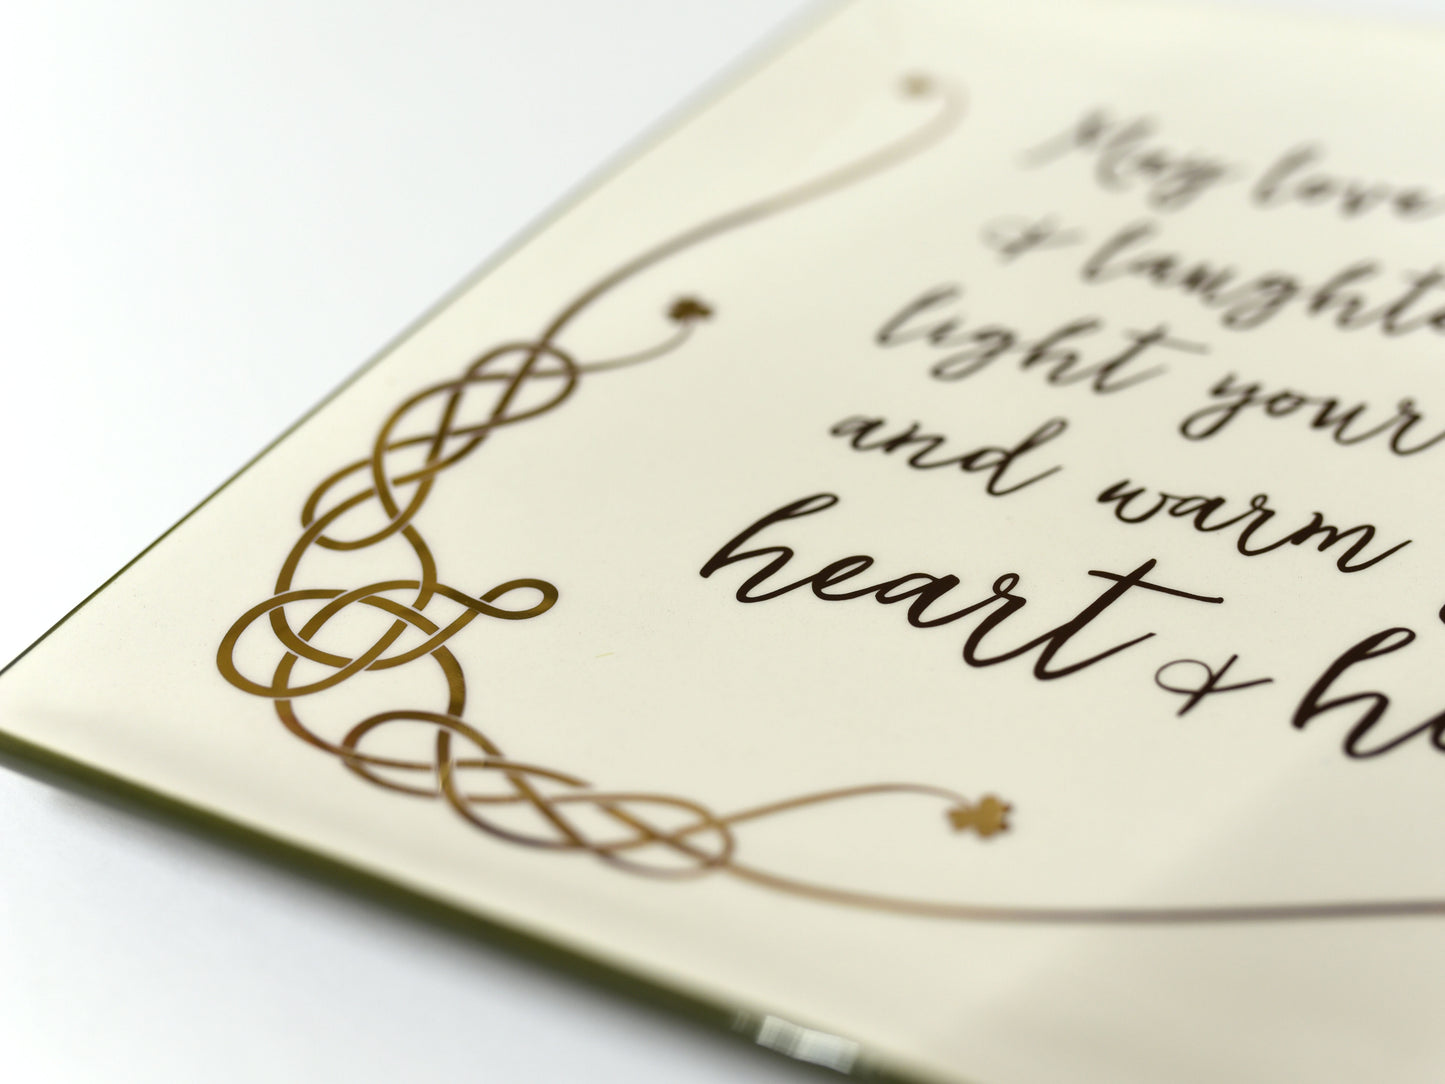 May love
& laughte
light your
and warm
heart & h